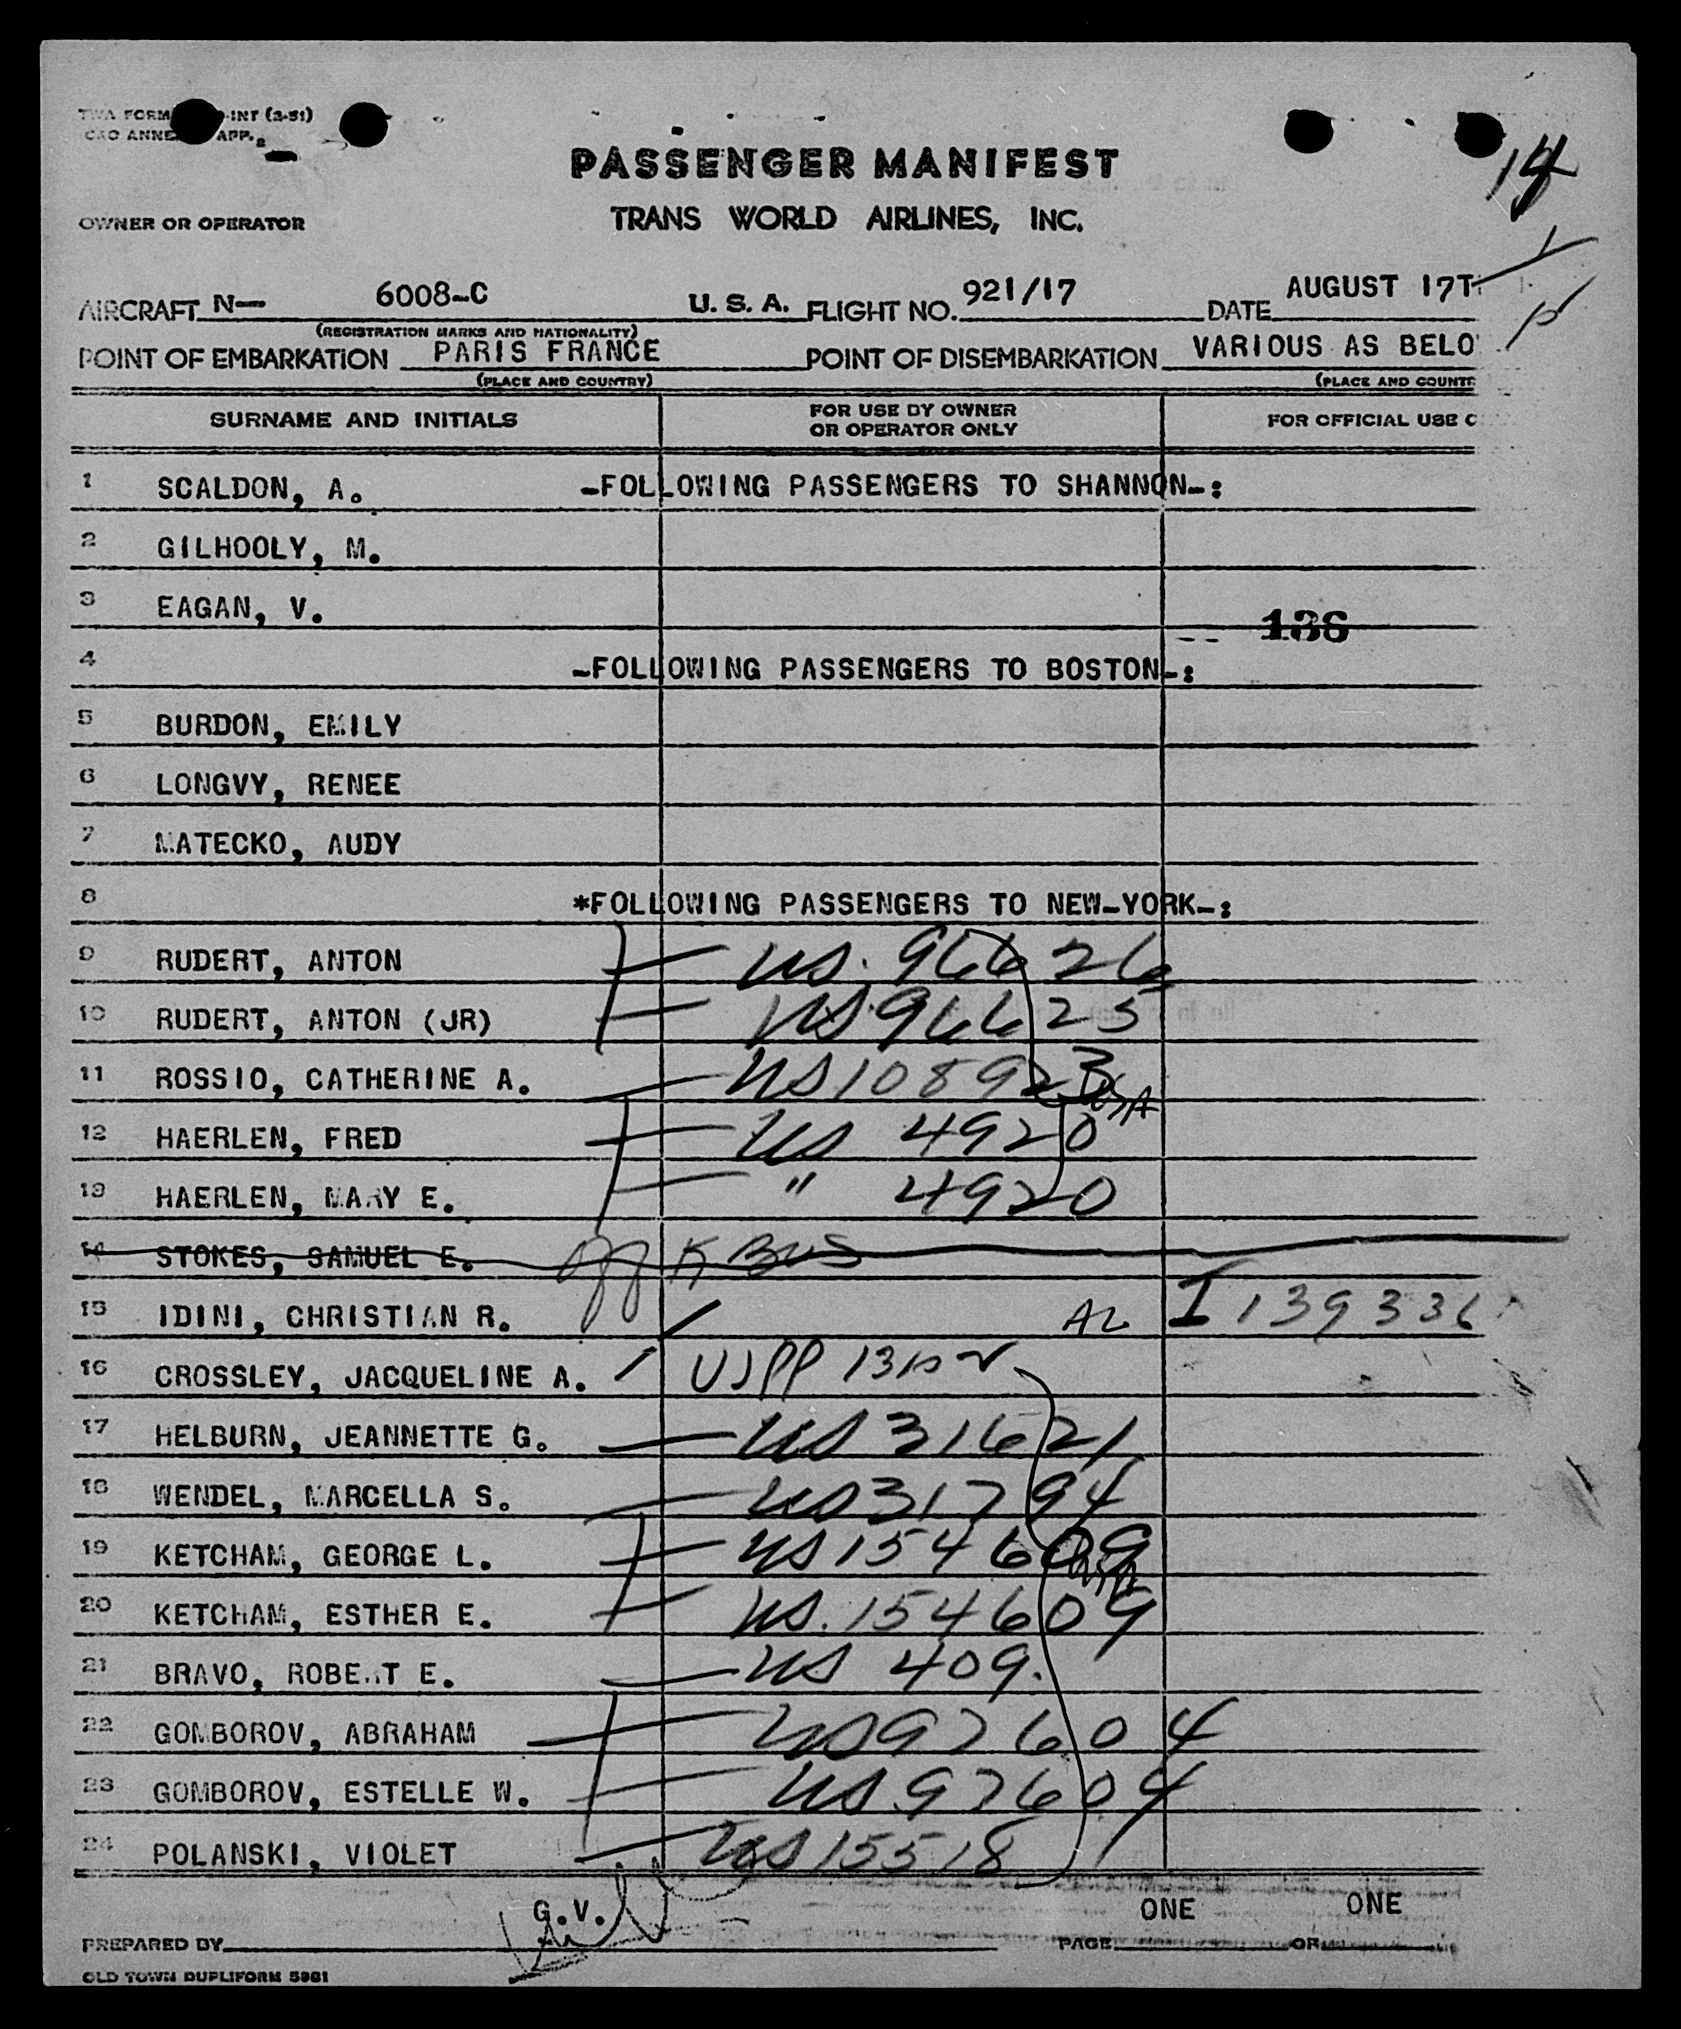 TWA FORM -INT (3-51)
CAO ANNE APP. 2
PASSENGER MANIFEST
14
OWNER OR OPERATOR TRANS WORLD AIRLINES, INC.
AIRCRAFT N- 6008-C U. S. A. FLIGHT NO. 921/17 DATE AUGUST 17T
(REGISTRATION MARKS AND NATIONALITY)
POINT OF EMBARKATION PARIS FRANCE POINT OF DISEMBARKATION VARIOUS AS BELO
(PLACE AND COUNTRY) (PLACE AND COUNTR
SURNAME AND INITIALS FOR USE BY OWNER OR OPERATOR ONLY FOR OFFICIAL USE O
1 SCALDON, A. -FOLLOWING PASSENGERS TO SHANNON-:
2 GILHOOLY, M.
3 EAGAN, V.
136
4 -FOLLOWING PASSENGERS TO BOSTON-:
5 BURDON, EMILY
6 LONGVY, RENEE
7 MATECKO, AUDY
8 *FOLLOWING PASSENGERS TO NEW-YORK-:
9 RUDERT, ANTON US. 96626
10 RUDERT, ANTON (JR) US 96625
11 ROSSIO, CATHERINE A. US 108923
USA
12 HAERLEN, FRED US 4920
13 HAERLEN, MARY E. " 4920
14 STOKES, SAMUEL E. Off K Bus
15 IDINI, CHRISTIAN R. AL I 139336
16 CROSSLEY, JACQUELINE A. USPP
17 HELBURN, JEANNETTE G. US 31621
18 WENDEL, MARCELLA S. US 31794
19 KETCHAM, GEORGE L. US 154609
20 KETCHAM, ESTHER E. US. 154609
21 BRAVO, ROBERT E. US 409.
22 GOMBOROV, ABRAHAM US 97604
23 GOMBOROV, ESTELLE W. US 97604
24 POLANSKI, VIOLET US 15518
G.V. ONE ONE
PREPARED BY PAGE OF
OLD TOWN DUPLIFORM 5981